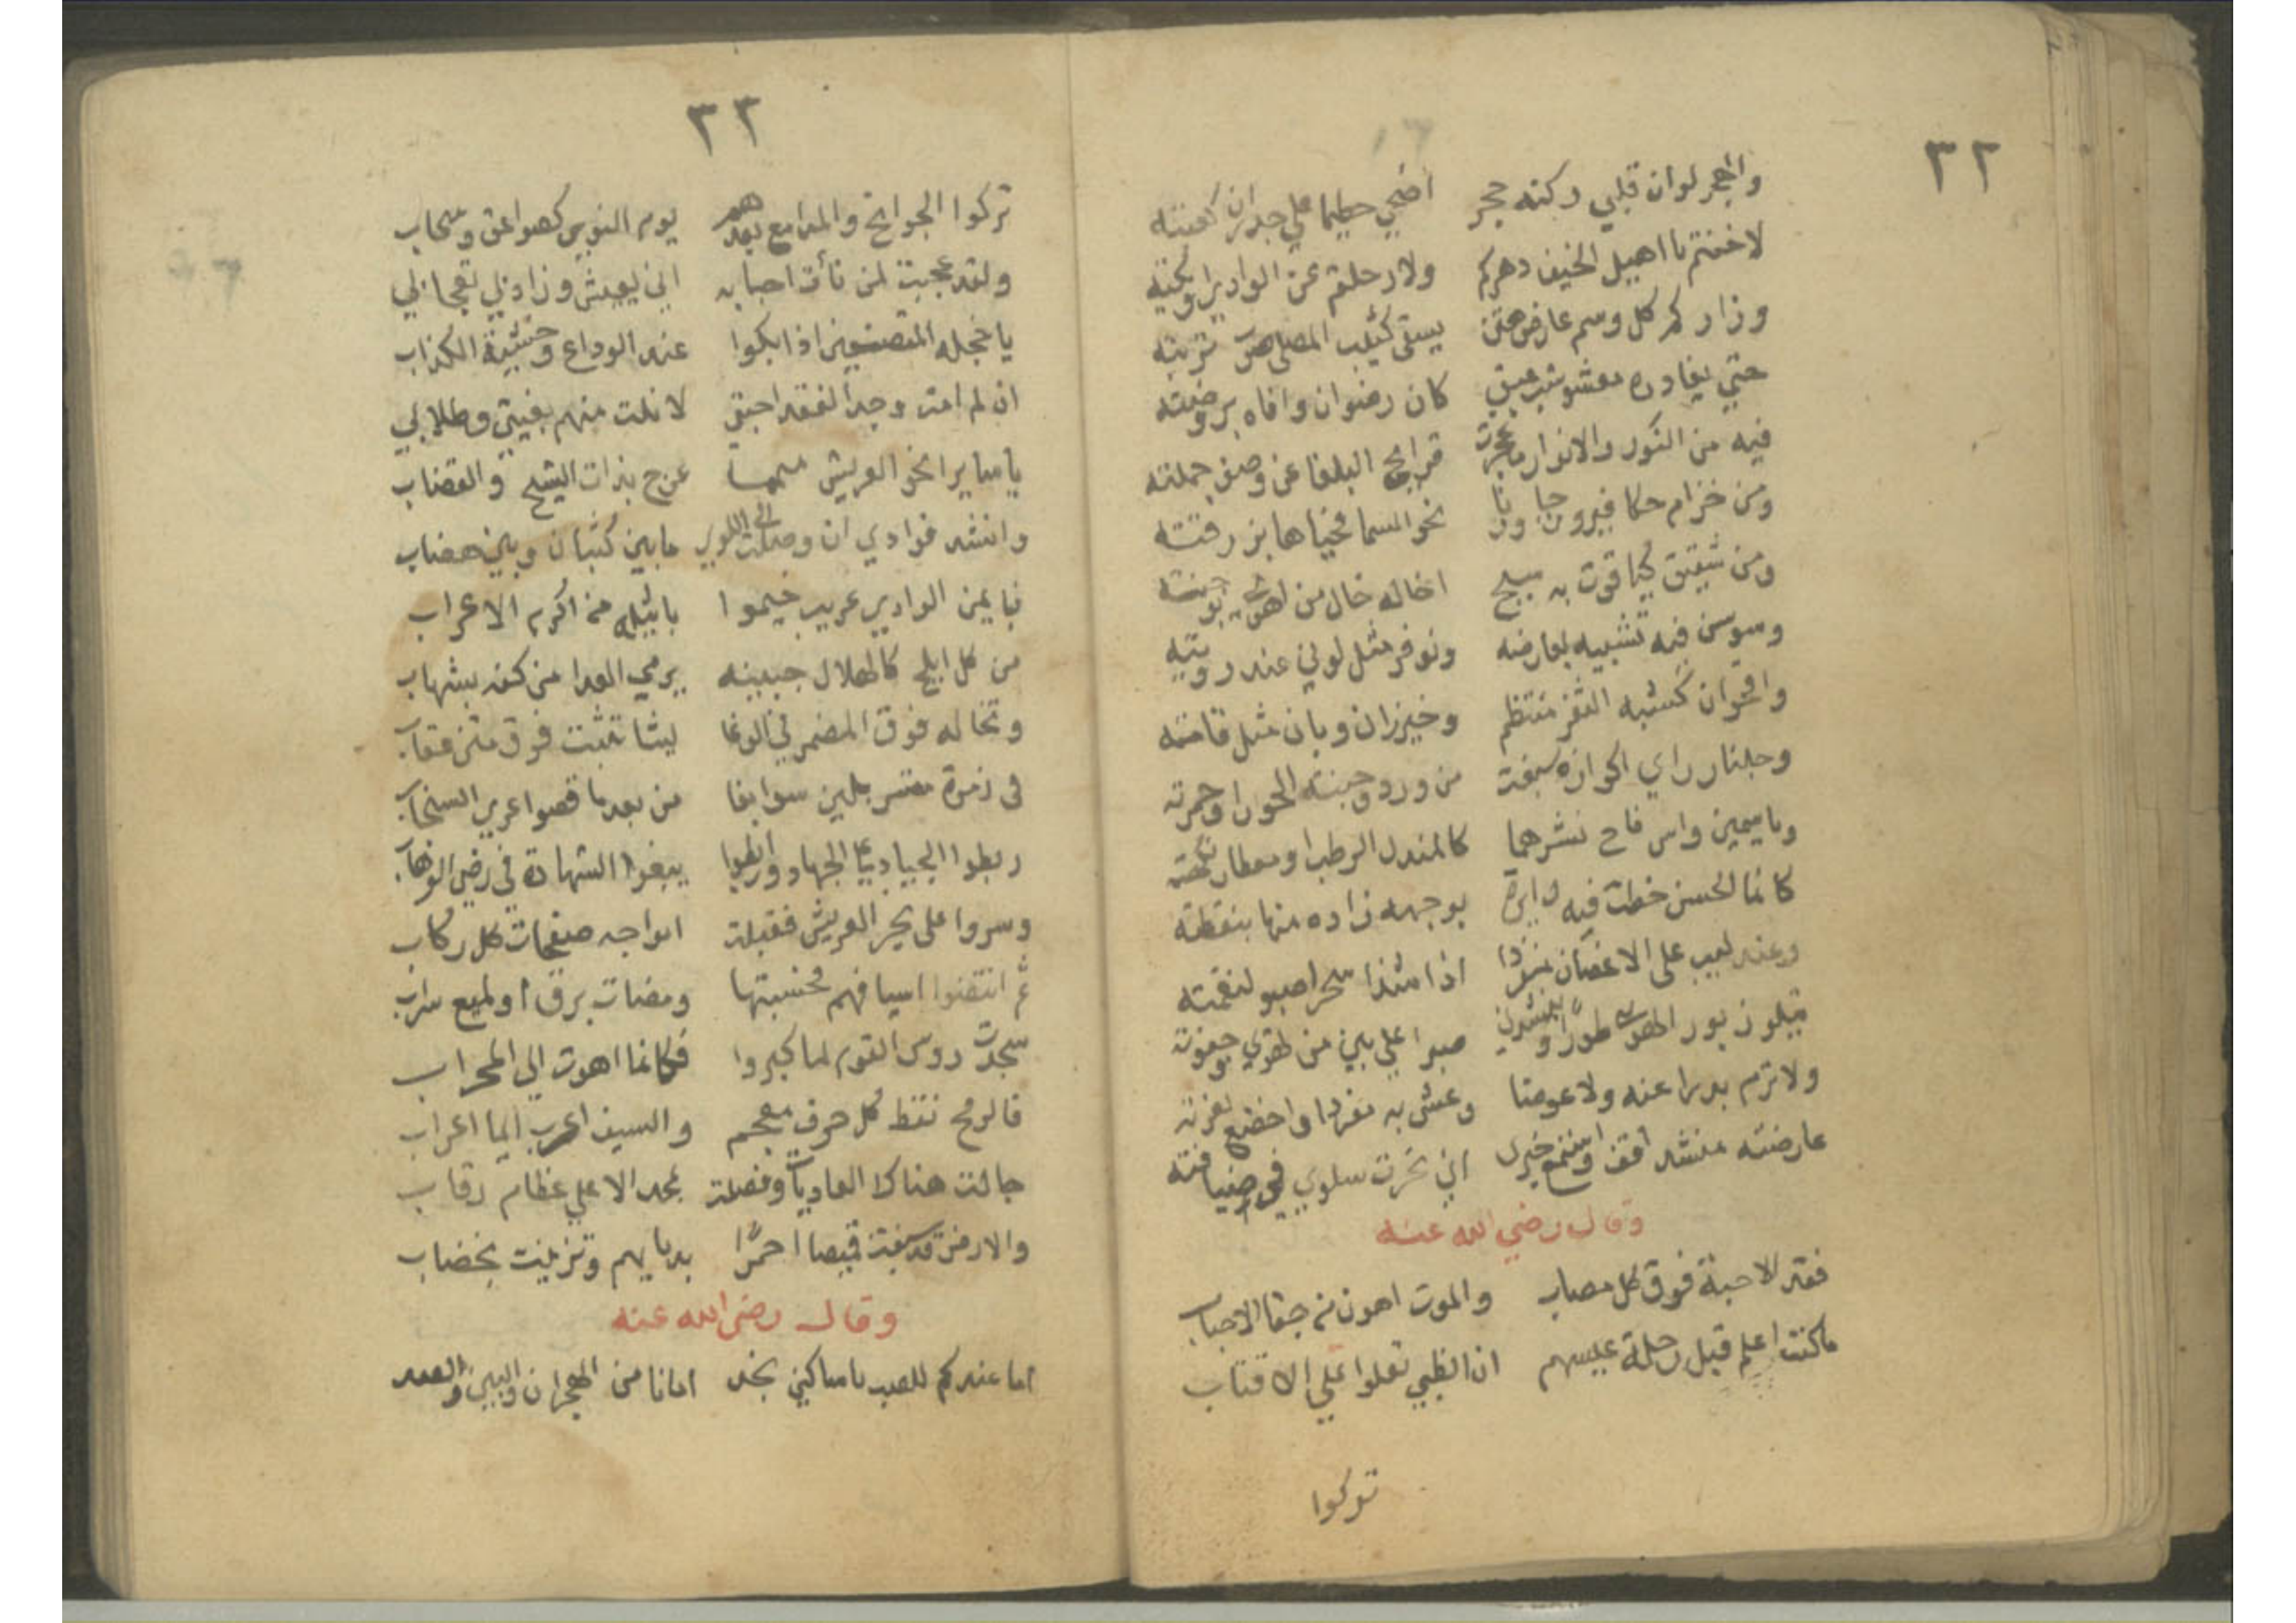 ٣٢
والهجر لوان قلبي ركنه حجر اضحي حطيما علي جدران كعبته
لا خفتم يا اهيل الخيف دهركم ولا رحلتم عن الوادي
وزاركم كل وسم عارض هتن يسقي كثيب المصلي تربته
حتي يغادره معشوشب عبق كان رضوان وافاه بروضته
فيه من النور والانوار ما عجزت قرايح البلغا عن وصف جملته
ومن خزام حكا فيروزجا نحو السما
ومن شقيق كياقوت به سبج اخاله خال من اهوي بوجنته
وسوسن فيه تشبيه بعارضه ونوفر مثل لوني عند رويته
واقحوان كشبه الثغر منتظم وخيزران وبان مثل قامته
وجلنار راي اكوازه من ورد وجنته الحورا وحمرته
وياسمين واس فاح نشرهما كالمندل الرطب او معطار نكهته
كانما الحسن خطت فيه دايرة بوجهه زاده منها بنقطته
وعندليب علي الاغصان منفردا اذا شدا سحرا صبو لنغمته
يتلو زبور الهوي طورا وينشدني صبرا علي بين من تهوي وجفوته
ولا ترم بدرا عنه ولا عوضا وعش به مغرما واخضع لعزته
عارضته منشد اقف واستمع خبري اني نحرت سلوي في ضيافته
وقال رضي الله عنه
فقد الاحبة فوق كل مصاب والموت اهون من جفا الاحباب
ما كنت اعلم قبل رحلة عيسهم ان الظبي تعلوا علي الاقتاب
تركوا
٣٣
تركوا الجوانح والمدامع بعدهم يوم النوي كصواعق وسحاب
ولقد عجبت لمن نأت احبابه اني يعيش وزاد بي تعجابي
يا خجله المتصنعين اذا بكوا عند الوداع وخشية الكذاب
ان لم امت وجداً لفقد احبتي لا نلت منهم بغيتي وطلابي
يا سايرا نحو العريش ميمما عرج بذات الشيح والقضاب
وانشد فوادي ان وصلت الي اللوي ما بين كثبان وبين هضاب
فبايمن الوادي عريب خيموا باثيله من اكرم الاعراب
من كل ابلج كالهلال جبينه يرمي العدا من كفه بشهاب
وتخاله فوق المضمر في الوغا ليثا تثبت فوق متن عقاب
في زمرة متسربلين سوابغا من بعد ما قصوا عري السنجاب
ربطوا الجياد علي الجهاد ورابطوا يبغوا الشهادة في رضي الوهاب
وسروا علي بحر العريش فقبلت امواجه صفحات كل ركاب
ثم انتضوا اسيافهم فحسبتها ومضات برق او لميع سراب
سجدت روس القوم لما كبروا فكانما اهوت الي المحراب
فالرمح نقط كل حرف معجم والسيف اعرب ايما اعراب
جالت هناك العاديات وفصلت بمجد الاعلي عظام رقاب
والارض قد سبغت قميصا احمرًا بدمايهم وتزينت بخضاب
وقال رضي الله عنه
اما عندكم للصب يا ساكني نجد امانا من الهجران والبين والصد